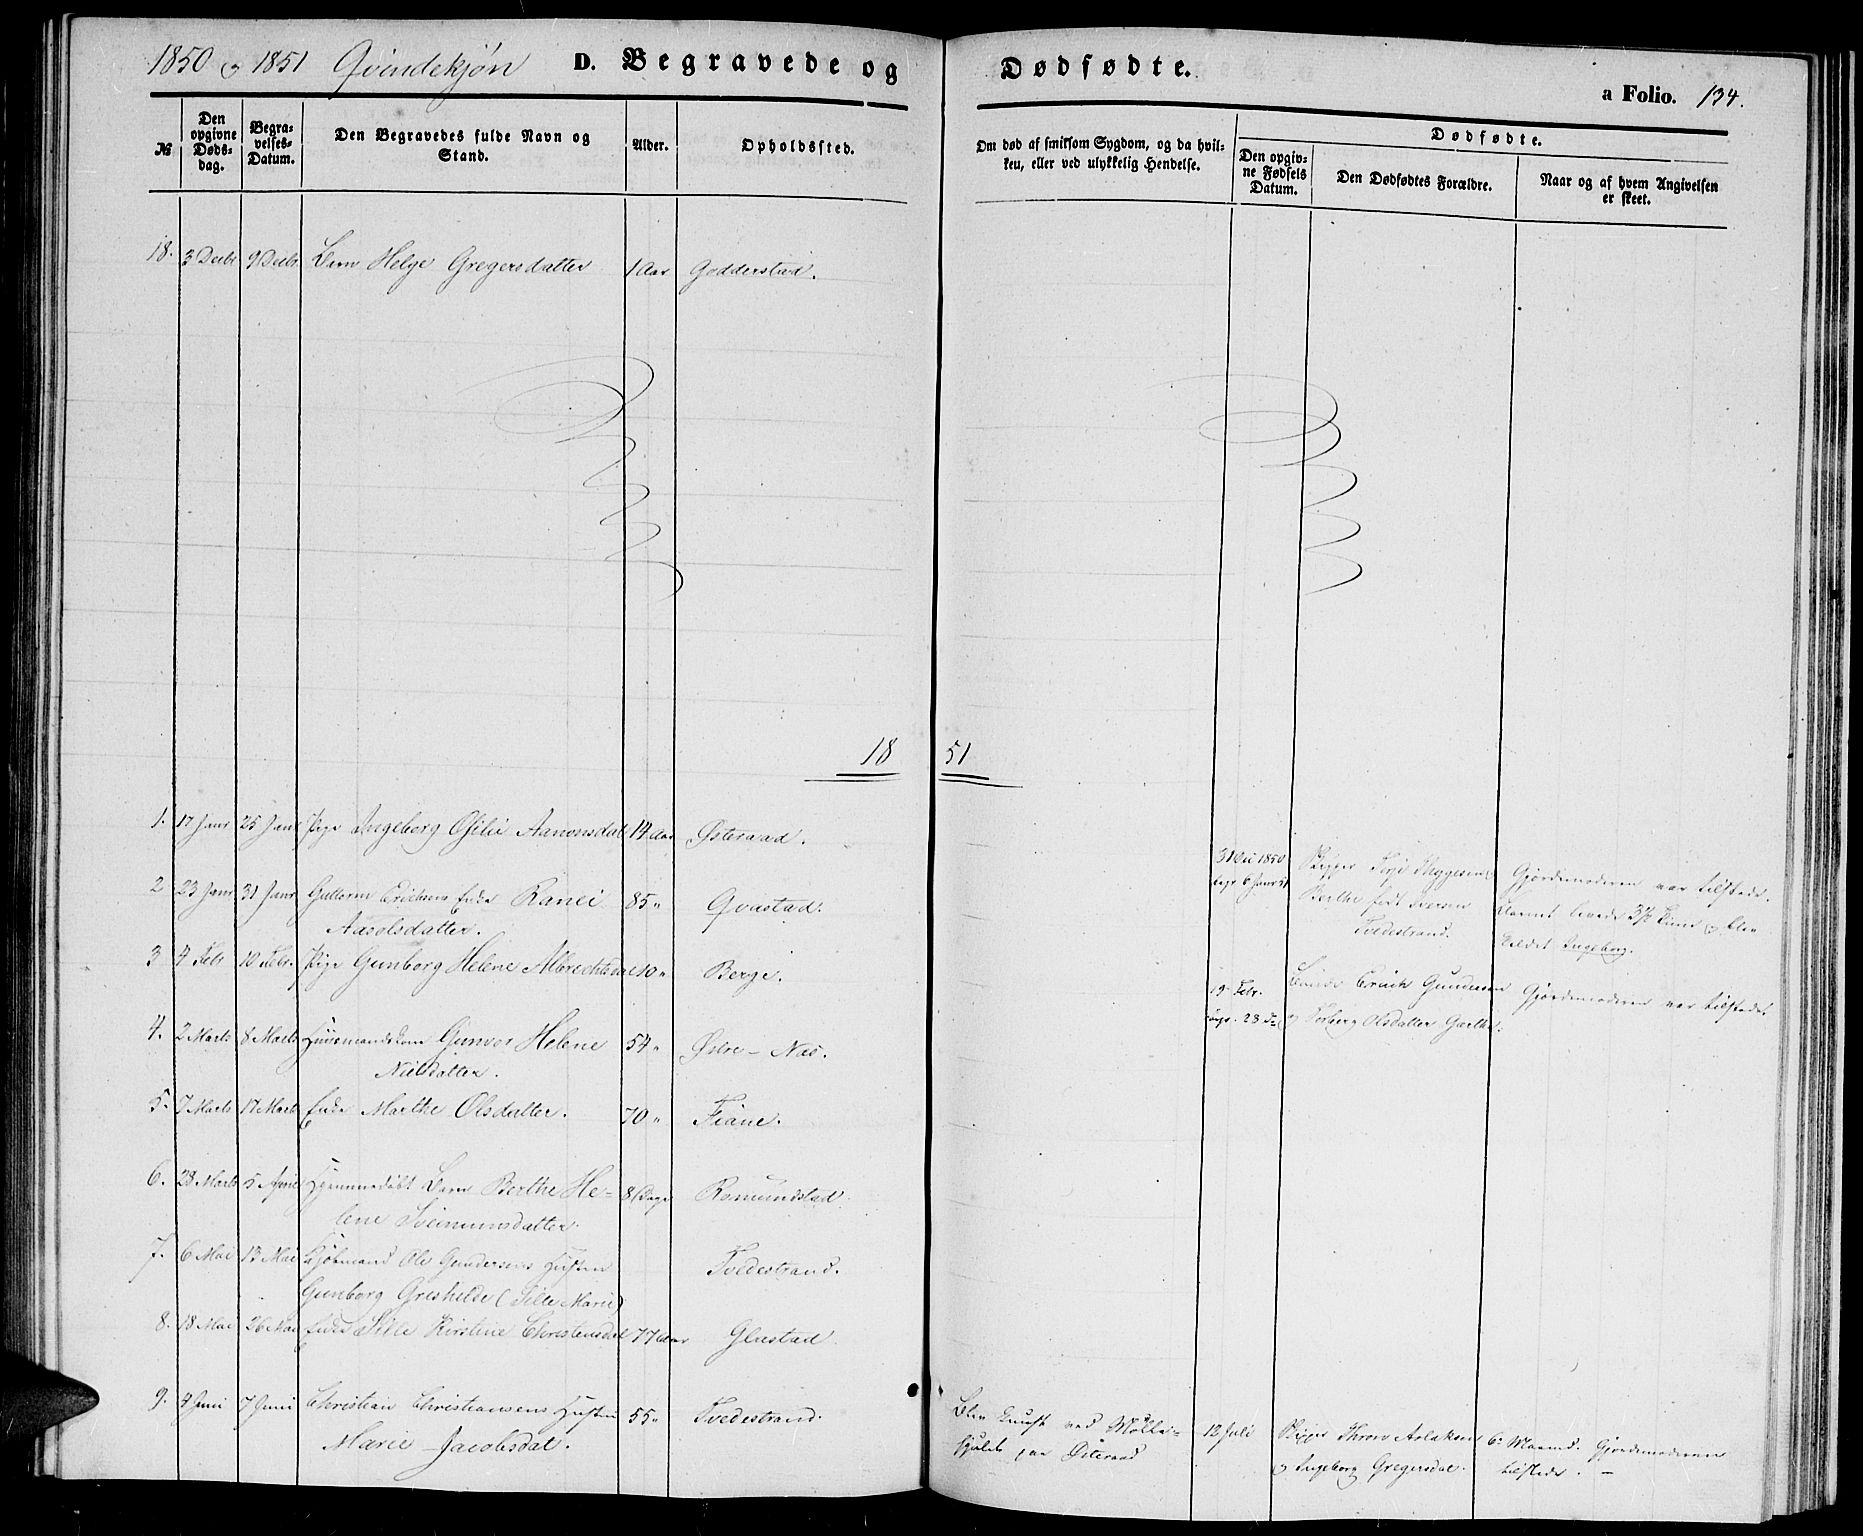 1850 og 1851 Qvindekjøn D. Begravede og Dødfødte.
a Folio. 134.
№
Den opgivne Døds-dag.
Begra-velses-Datum.
Den Begravedes fulde Navn og Stand.
Alder.
Opholdssted.
Om død af smitsom Sygdom, og da hvil-
ken, eller ved ulykkelig Hendelse.
Dødfødte.
Den opgiv-ne Fødsels Datum.
Den Dødfødtes Forældre.
Naar og af hvem Angivelsen er skeet.
18. 3 Decbr 9 Decbr Barn Helge Gregersdatter 1 Aar Godderstad.
18 51
1. 17 Janr 25 Janr Pige Ingeborg Osilie Aanonsdat 14 Aar Østeraad.
2 23 Janr 31 Janr Guttorm Erichsens Enke Ranei 85 " Qvastad.
Aasolsdatter.
3 4 Febr 10 Febr. Pige Gunborg Helene Albrechtsdat 10 " Berge.
4. 2 Marts 8 Marts Huusmandskone Gunvor Helene 54 " Østre-Næs.
Nielsdatter.
5. 7 Marts 17 Marts Enke Marthe Olsdatter. 70 " Fiane.
6. 28 Marts 5 April Hjemmedøbt Barn Berthe He- 8 Dage Romundstad.
lene Sveinunsdatter.
7. 6 Mai 13 Mai Kjøbmand Ole Gundersens Hustru Tvedestrand.
Gunborg Greshilde (Sille Marie)
8. 18 Mai 26 Mai Enke Sille Kirstine Christensdat 77 Aar Glastad
9. 4 Juni 7 Juni Christian Christiansens Hustru 55 " Tvedestrand.
Marie Jacobsdat.
31 Dec 1850 Skipper Terje Thygesen Gjordemoderen var tilstede.
begr 6 Janr 51 Berthe født Iversen Barnet levede 3½ Time og blev
Tvedestrand. kaldet Ingeborg.
19 Febr. Erich Gundersen Gjordemoderen var tilstede
begr. 28 D. og Torborg Olsdatter Garthe.
Blev knust ved Mølle- 12 Juli Skipper Thron Aslaksen 6 Maaned. Gjordemoderen
hjulet paa Østeraad og Ingeborg Gregersdat. tilstede. —